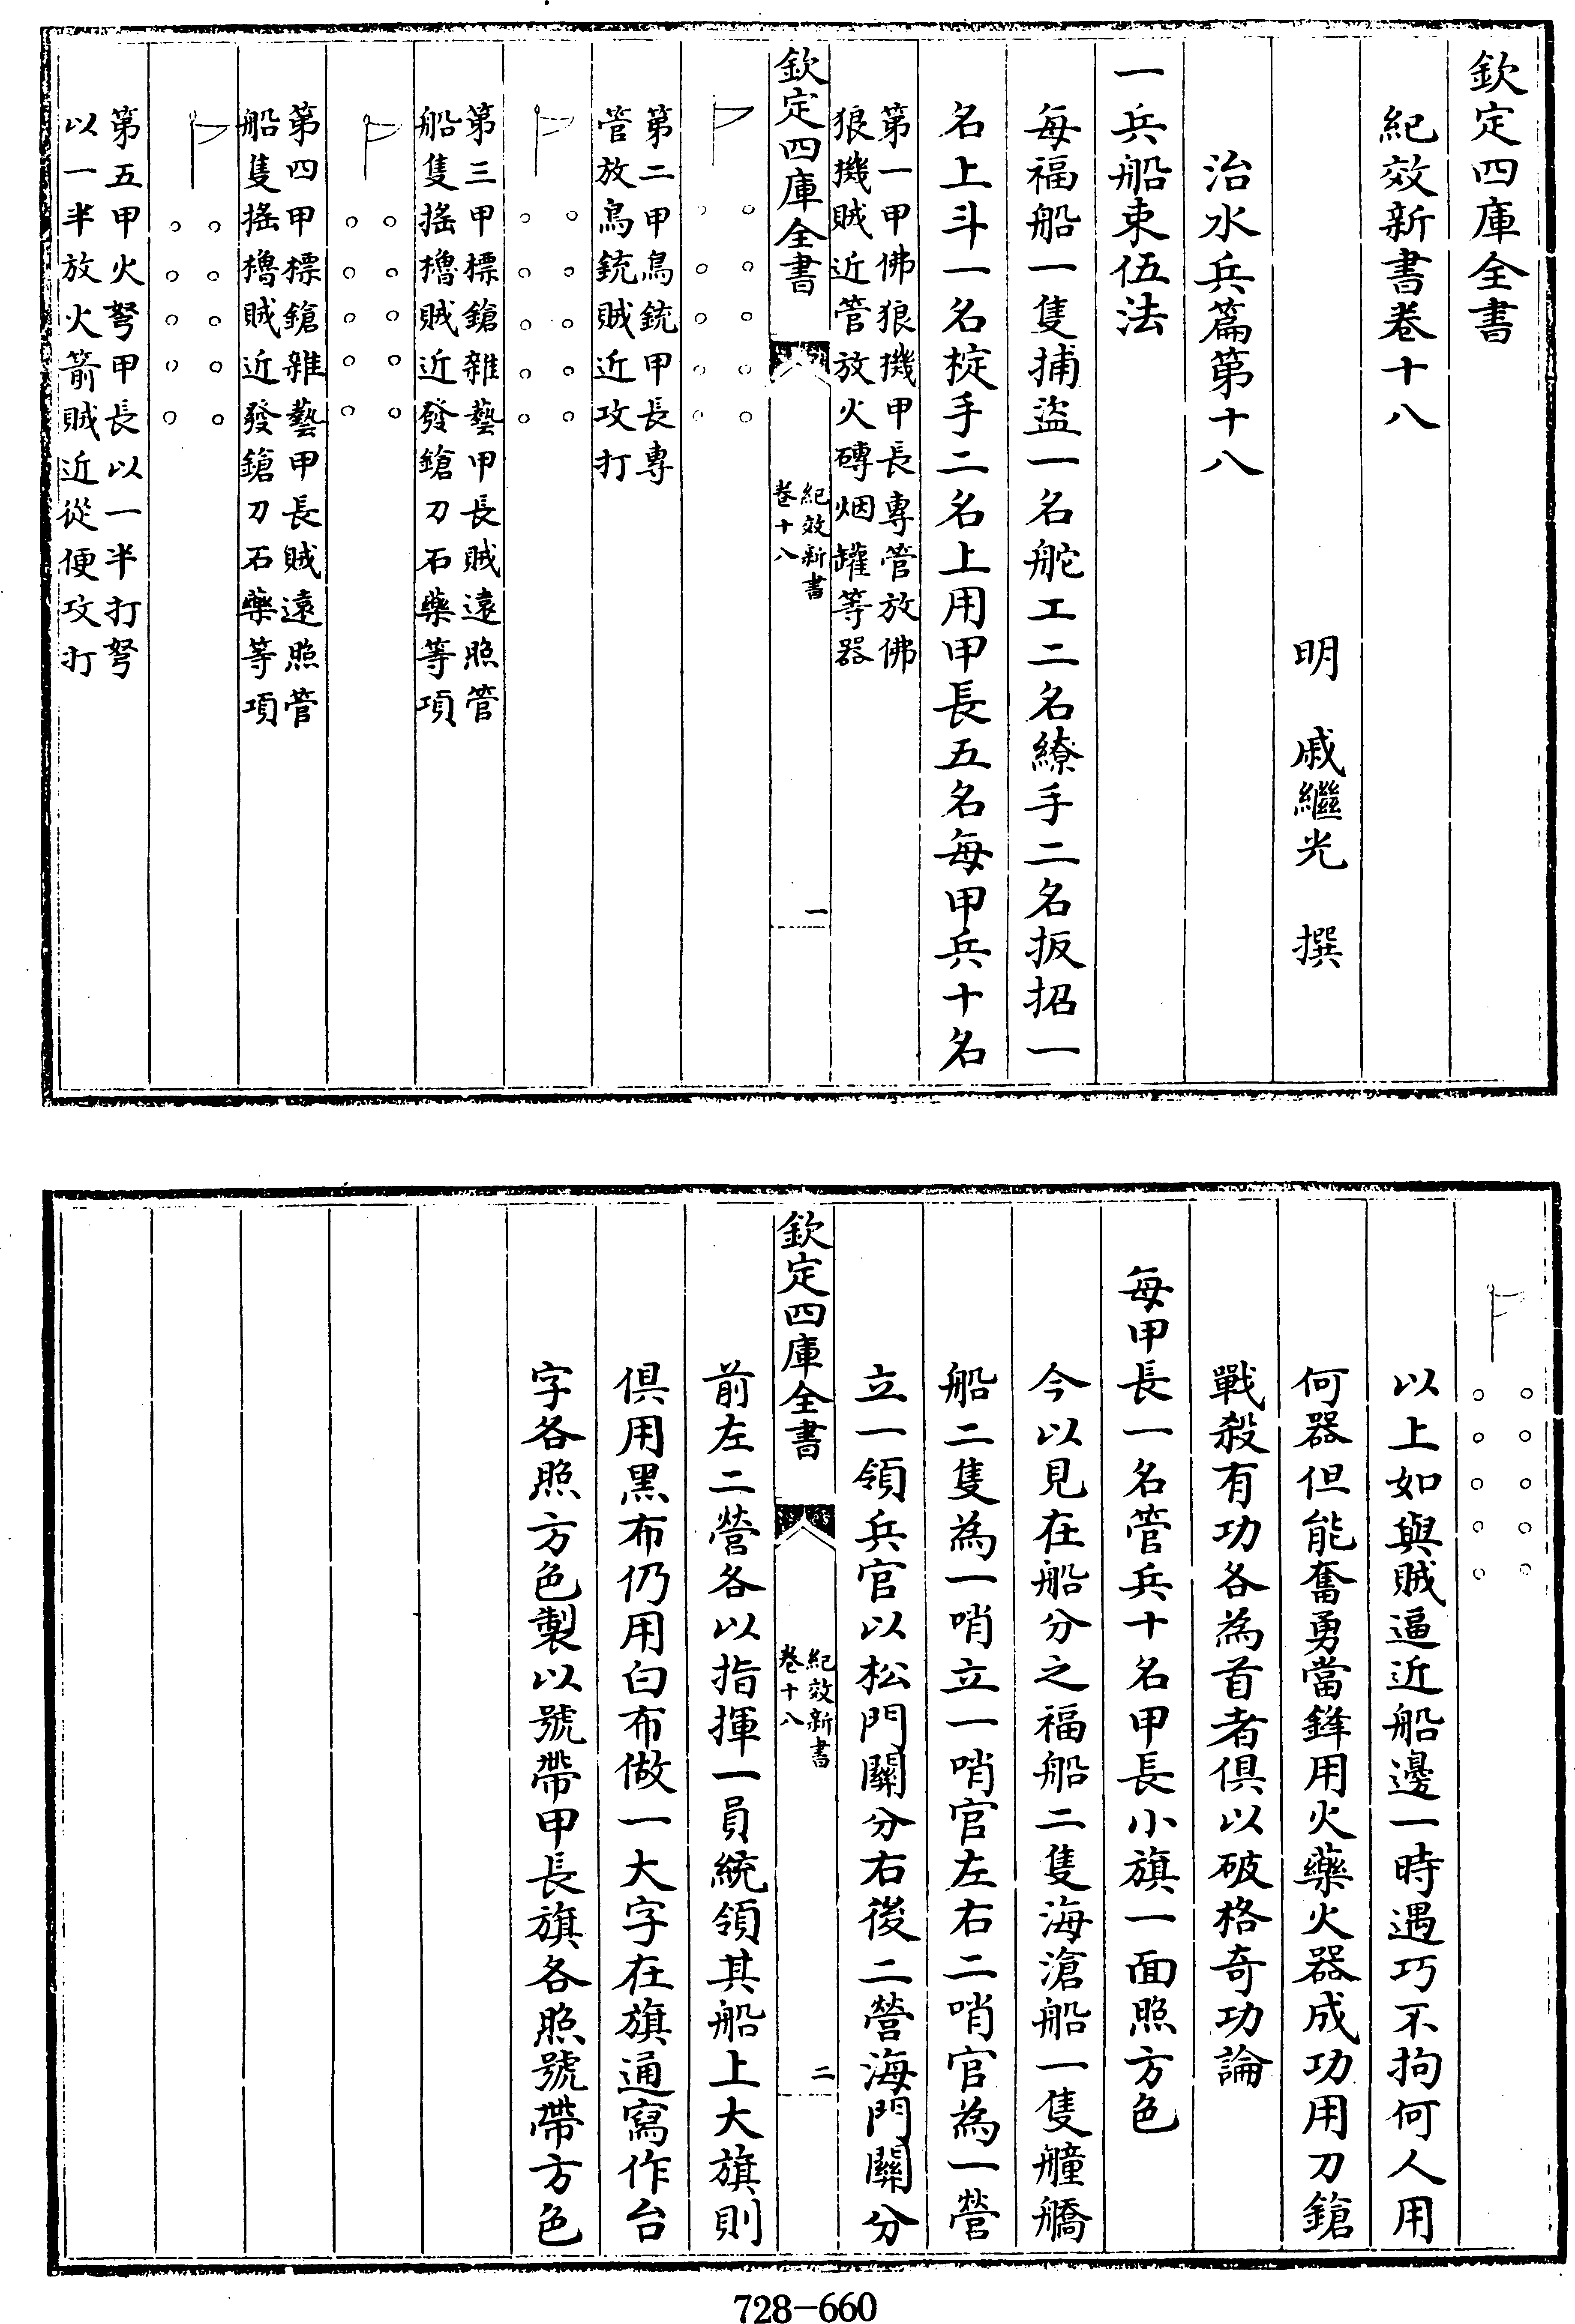 欽定四庫全書
紀效新書卷十八
明　戚繼光　撰
治水兵篇第十八
一兵船束伍法
每福船一隻捕盜一名舵工二名繚手二名扳招一
名上斗一名椗手二名上用甲長五名每甲兵十名
第一甲佛狼機甲長專管放佛
狼機賊近管放火磚烟罐等器
欽定四庫全書
紀效新書
卷十八
一
第二甲鳥銃甲長專
管放鳥銃賊近攻打
第三甲標鎗雜藝甲長賊遠照管
船隻搖櫓賊近發鎗刀石藥等項
第四甲標鎗雜藝甲長賊遠照管
船隻搖櫓賊近發鎗刀石藥等項
第五甲火弩甲長以一半打弩
以一半放火箭賊近從便攻打
以上如與賊逼近船邊一時遇巧不拘何人用
何器但能奮勇當鋒用火藥火器成功用刀鎗
戰殺有功各為首者俱以破格奇功論
每甲長一名管兵十名甲長小旗一面照方色
今以見在船分之福船二隻海滄船一隻艟䑿
船二隻為一哨立一哨官左右二哨官為一營
立一領兵官以松門關分右後二營海門關分
欽定四庫全書
紀效新書
卷十八
二
前左二營各以指揮一員統領其船上大旗則
俱用黑布仍用白布做一大字在旗通寫作台
字各照方色製以號帶甲長旗各照號帶方色
728-660